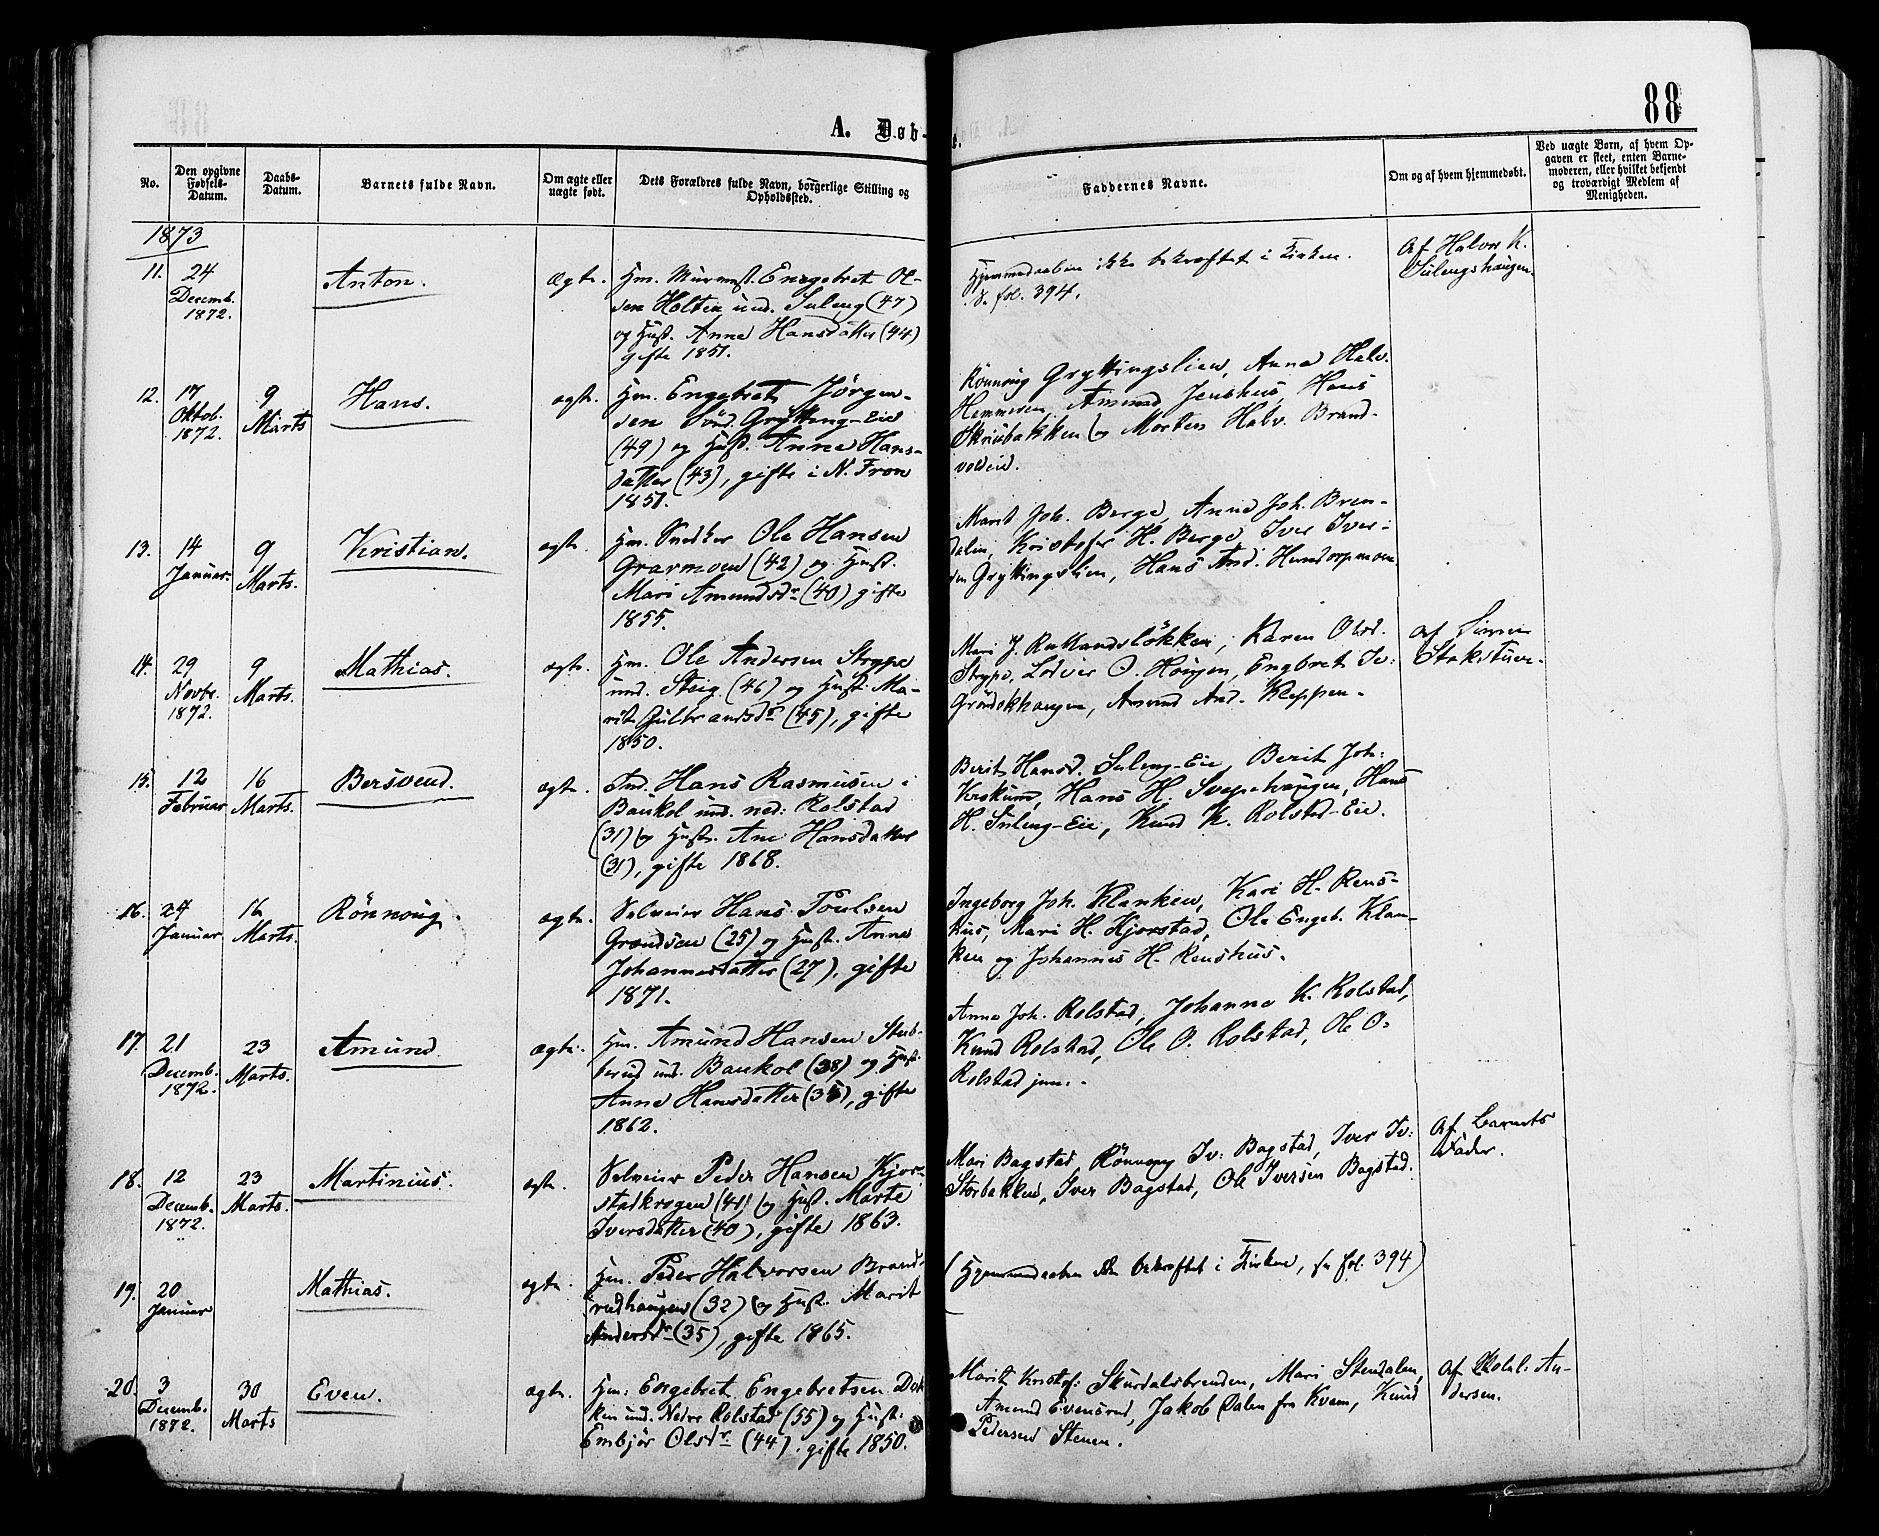 88
A. Døb-
e.
No.
Den opgivne Fødsels-Datum.
Daabs-Datum.
Barnets fulde Navn.
Om ægte eller uægte født.
Dets Forældres fulde Navn, borgerlige Stilling og Opholdssted.
Faddernes Navne.
Om og af hvem hjemmedøbt.
Ved uægte Børn, af hvem Opgaven er skeet, enten Barnemoderen, eller hvilket bekjendt og troværdigt Medlem af Menigheden.
1873
11. 24 Decemb. 1872.
Anton.
Ægte.
Hm. Murmest. Engebret Ol-
sen Holten und. Suleng (47)
og Hust. Anne Hansdatter (44)
gifte 1851.
Hjemmedaaben ikke bekræftet i Kirken.
S. fol. 394.
Af Halvor K.
Sulengshaugen
12. 17 Oktob. 1872. 9 Marts
Hans.
ægte.
Hm. Engebret Jörgen-
sen Sönd. Grytting-Eie
(49) og Hust. Anne Hans-
datter (43), gifte i N. Fron
1851.
Rönnoug Gryttingslien, Anna Halv.
Hammeren, Amund Jenshus, Hans
Skriubakken og Morten Halv. Brand-
voldeie.
13. 14 Januar. 9 Marts.
Kristian.
ægte.
Hm. Snedker Ole Hansen
Grarmoen (42) og Hust.
Mari Amundsdr (40) gifte
1855.
Marit Joh. Berge, Anne Joh. Bren-
dalen, Kristofer H. Berge, Iver Iver-
sen Gryttingslien, Hans And. Hundorpmoen
14. 29 Novbr. 1872. 9 Marts.
Mathias.
ægte.
Hm. Ole Andersen Strype
und. Steig (46) og Hust. Ma-
rit Gulbrandsdr (45), gifte
1850.
Mari J. Rutlandslökken, Karen Olsd.
Strype, Lodver O. Haugen, Engbret Iv.
Gröndokhaugen, Amund And. Kleppen.
Af Simen
Stokstuen.
15. 12 Februar 16 Marts.
Bersvend.
ægte.
Ind. Hans Rasmusen i
Baukol und. ned. Rolstad
(31) og Hust. Ane Hansdatter
(31), gifte 1868.
Berit Hansd. Suleng-Eie, Berit Joh.
Krokum, Hans H. Svepehaugen, Hans
H. Suleng-Eie, Knud K. Rolstad-Eie.
16. 24 Januar 16 Marts.
Rönnoug.
ægte.
Selveier Hans Poulsen
Grandsen (25) og Hust. Anne
Johannesdatter (27), gifte
1871.
Ingeborg Joh. Klanken, Kari H. Rens-
hus, Mari H. Kjorstad, Ole Engeb. Klan-
ken og Johannes H. Renshus.
17. 21 Decemb. 1872. 23 Marts.
Amund.
ægte.
Hm. Amund Hansen Stub-
berud und. Baukol (38) og Hust.
Anne Hansdatter (35), gifte
1862.
Anne Joh. Rolstad, Johanne K. Rolstad,
Knud Rolstad, Ole O. Rolstad, Ole O.
Rolstad jun.
18. 12 Decemb. 1872. 23 Marts.
Martinius.
ægte.
Selveier Peder Hansen Kjor-
stadkrogen (41) og Hust. Marte
Iversdatter (40), gifte 1863.
Mari Bagstad, Rönnoug Iv. Bagstad, Iver Iv.
Storbakken, Iver Bagstad, Ole Iversen Bagstad.
Af Barnets
Fader.
19. 20 Januar
Mathias.
ægte.
Hm. Peder Halvorsen Brand-
rudhaugen (32) og Hust. Marit
Andersdr (35), gifte 1865.
(Hjemmedaaben ikke bekræftet i Kirken, se fol. 394)
20. 3 Decemb. 1872. 30 Marts
Even.
ægte.
Hm. Engebret Engebretsen Dok-
ken und. Nedre Rolstad (55) og Hust.
Embjør Olsdr (44), gifte 1850.
Marit Kristof. Skurdalsbrenden, Mari Stendalen,
Amund Evensrud, Jakob Dalen fra Kvam, Knud
Pedersen Stenen.
Af Skolel. An-
dersen.